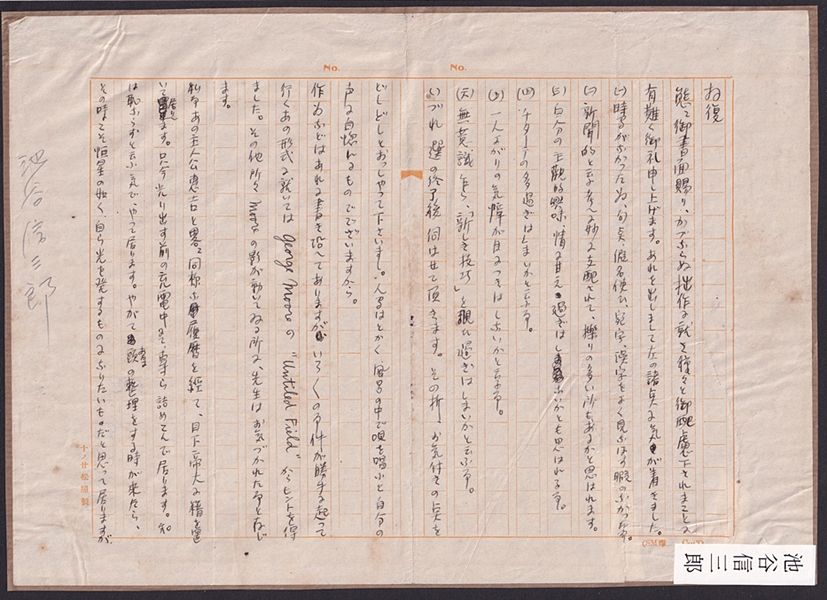 お復
態々御書面賜り、かつつぶらぬ拙作に就き種々と御配慮下されまことに
有難く御礼申し上げます。あれを出しまして左の諸点に気が着きました。
(一)時間がなかった為、句点、仮名使ひ、宛字、誤字をよく見なほす暇のなかった事。
(二)新聞的と云ふ考へに妙に支配されて、擽りの多い所もあるかと思はれます。
(三)自分の主観的興味、情に甘え過ぎはしまいかとも思はれる事。
(四)チタ一テの多過ぎはしまいかと云ふ事。
(五)一人よがりの気障が目につきはしないかと云ふ事。
(六)無意識乍ら、「新しき技巧」を覗ひ過ぎはしまいかと云ふ事。
いづれ選の終了後伺はせて頂きます。その折、お気付きの点を
どしどしとおっしやって下さいまし。人間はとかく風呂の中で唄を唱ふと自分の
声に自惚れるものでございますから。
作為などはあれる書き
行くあの形式に就いては George Moore の "Untilled Field" からヒントを得
ました。その他所々 の影が動いてゐる所は、先生はお気づかれた事と存じ
ます。
私今あの主人公恵吉と略々同様な履歴を経て、目下帝大に籍を置
いて居ります。只今光り出す前の充電中にて、専ら詰めこんで居ります。知
は恥ならずと云ふ気で、やって居ります。やがて頭の整理をする時が来たら、
その時こそ恒星の如く自ら光を発するものになりたいものだと思って居りますが
池谷信三郎
No.
No.
十ノ廿松屋製
池谷信三郎